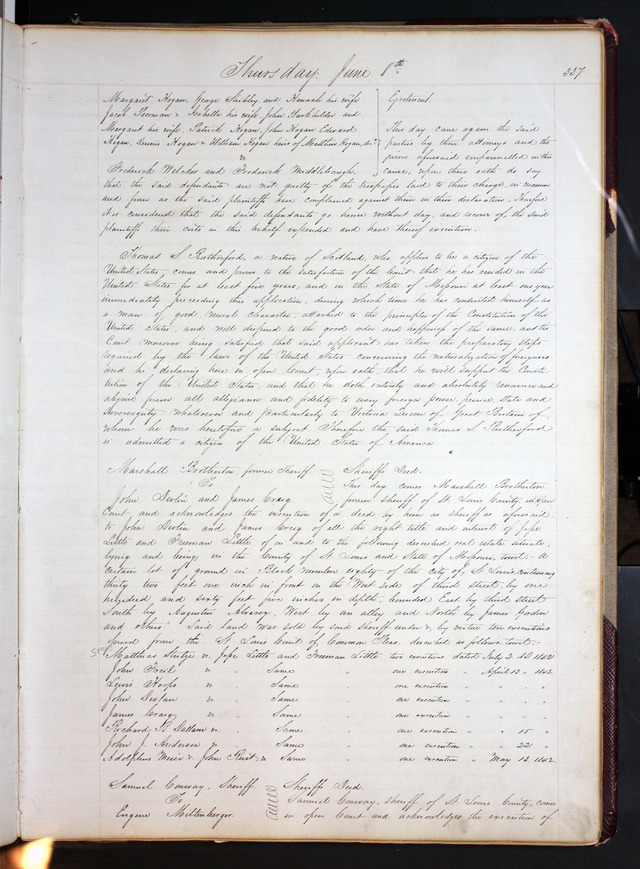 Thursday, June 8th
337
Margaret Hogan, George Shibley and Hannah his wife
Jacob Bowman & Isabella his wife, John Burkhilder and
Margaret his wife, Patrick Hogan, John Hogan Edward
Hogan, & William Hogan heirs of Matthew Hogan, dec'd
vs.
Frederick Welcher and Frederick Middlebaugh.
Ejectment.
This day came again the said
parties by their attorneys and the
jurors aforesaid empannelled in this
cause, upon their oath do say
that the said defendants are not guilty of the trespasses laid to their charge, in manner
and form as the said plaintiffs have complained against them in their declaration. Therefore
it is considered that the said defendants go hence without day, and recover of the said
plaintiffs their costs in this behalf expended and have thereof execution.
Thomas S. Rutherford, a native of Scotland, who applies to be a citizen of the
United States, comes and proves to the satisfaction of the Court that he has resided in the
United States for at least five years, and in the State of Missouri at least one year
immediately preceeding this application, during which time he has conducted himself as
a man of good moral character, attached to the principles of the Constitution of the
United States, and well disposed to the good order and happiness of the same, and the
Court moreover being satisfied that said applicant has taken the preparatory steps
required by the laws of the United States concerning the naturalization of foreigners
and he declaring here in open Court, upon oath, that he will support the Consti-
tution of the United States, and that he doth entirely and absolutely renounce and
abjure from all allegiance and fidelity to every foreign power, prince, State and
Sovereignty whatsoever and particularly to Victoria Queen of Great Britain of
whom he was heretofore a subject. Therefore the said Thomas S. Rutherford
is admitted a citizen of the United States of America
Marshall Brotherton, former Sheriff
To
John Devlin and James Craig
Sheriffs Deed.
This day comes Marshall Brotherton
former sheriff of St Louis County, in open
Court and acknowledges the execution of a deed by him as sheriff as aforesaid
to John Devlin and James Craig of all the right title and interest of Jefse
Little and Freeman Little of in and to the following described real estate situate
lying and being in the County of St Louis and State of Missouri, towit: "A
certain lot of ground in Block number eighty of the City of St Louis, containing
thirty two feet one inch in front on the West side of third street, by one
hundred and sixty feet five inches in depth, bounded East by third street
South by Augustin Alvarez, West by an alley and North by James Gordon
and others" Said land was sold by said sheriff under & by virtue ten executions
issued from the St Louis Court of Common Pleas, described as follows towit:
Matthias Steitze vs. Jefse Little and Freeman Little two executions dated July 2. AD 1842
John Freil vs. Same one execution " April 12 " 1842
Lewis Hoops vs. Same one execution " " " "
John Devlan vs. Same one execution " " " "
James Craig vs. Same one execution " " " "
Richard B. Dallam vs. Same one execution " " 15 " "
John J. Anderson vs. Same one execution " " 22 " "
Adolphus Meier & John Rust, vs Same one execution " May 13. 1842
Samuel Conway, Sheriff
To
Eugene Miltenberger
Sheriffs Deed.
Samuel Conway, sheriff of St Louis County, comes
in open Court and acknowledges the execution of